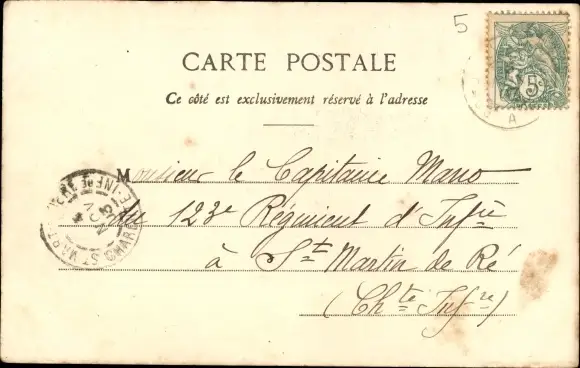 5
CARTE POSTALE
Ce côté est exclusivement réservé à l'adresse
5c
A
Monsieur le Capitaine Mano
du 123e Régiment d'Infie
à St Martin de Ré
(Chte Infre)